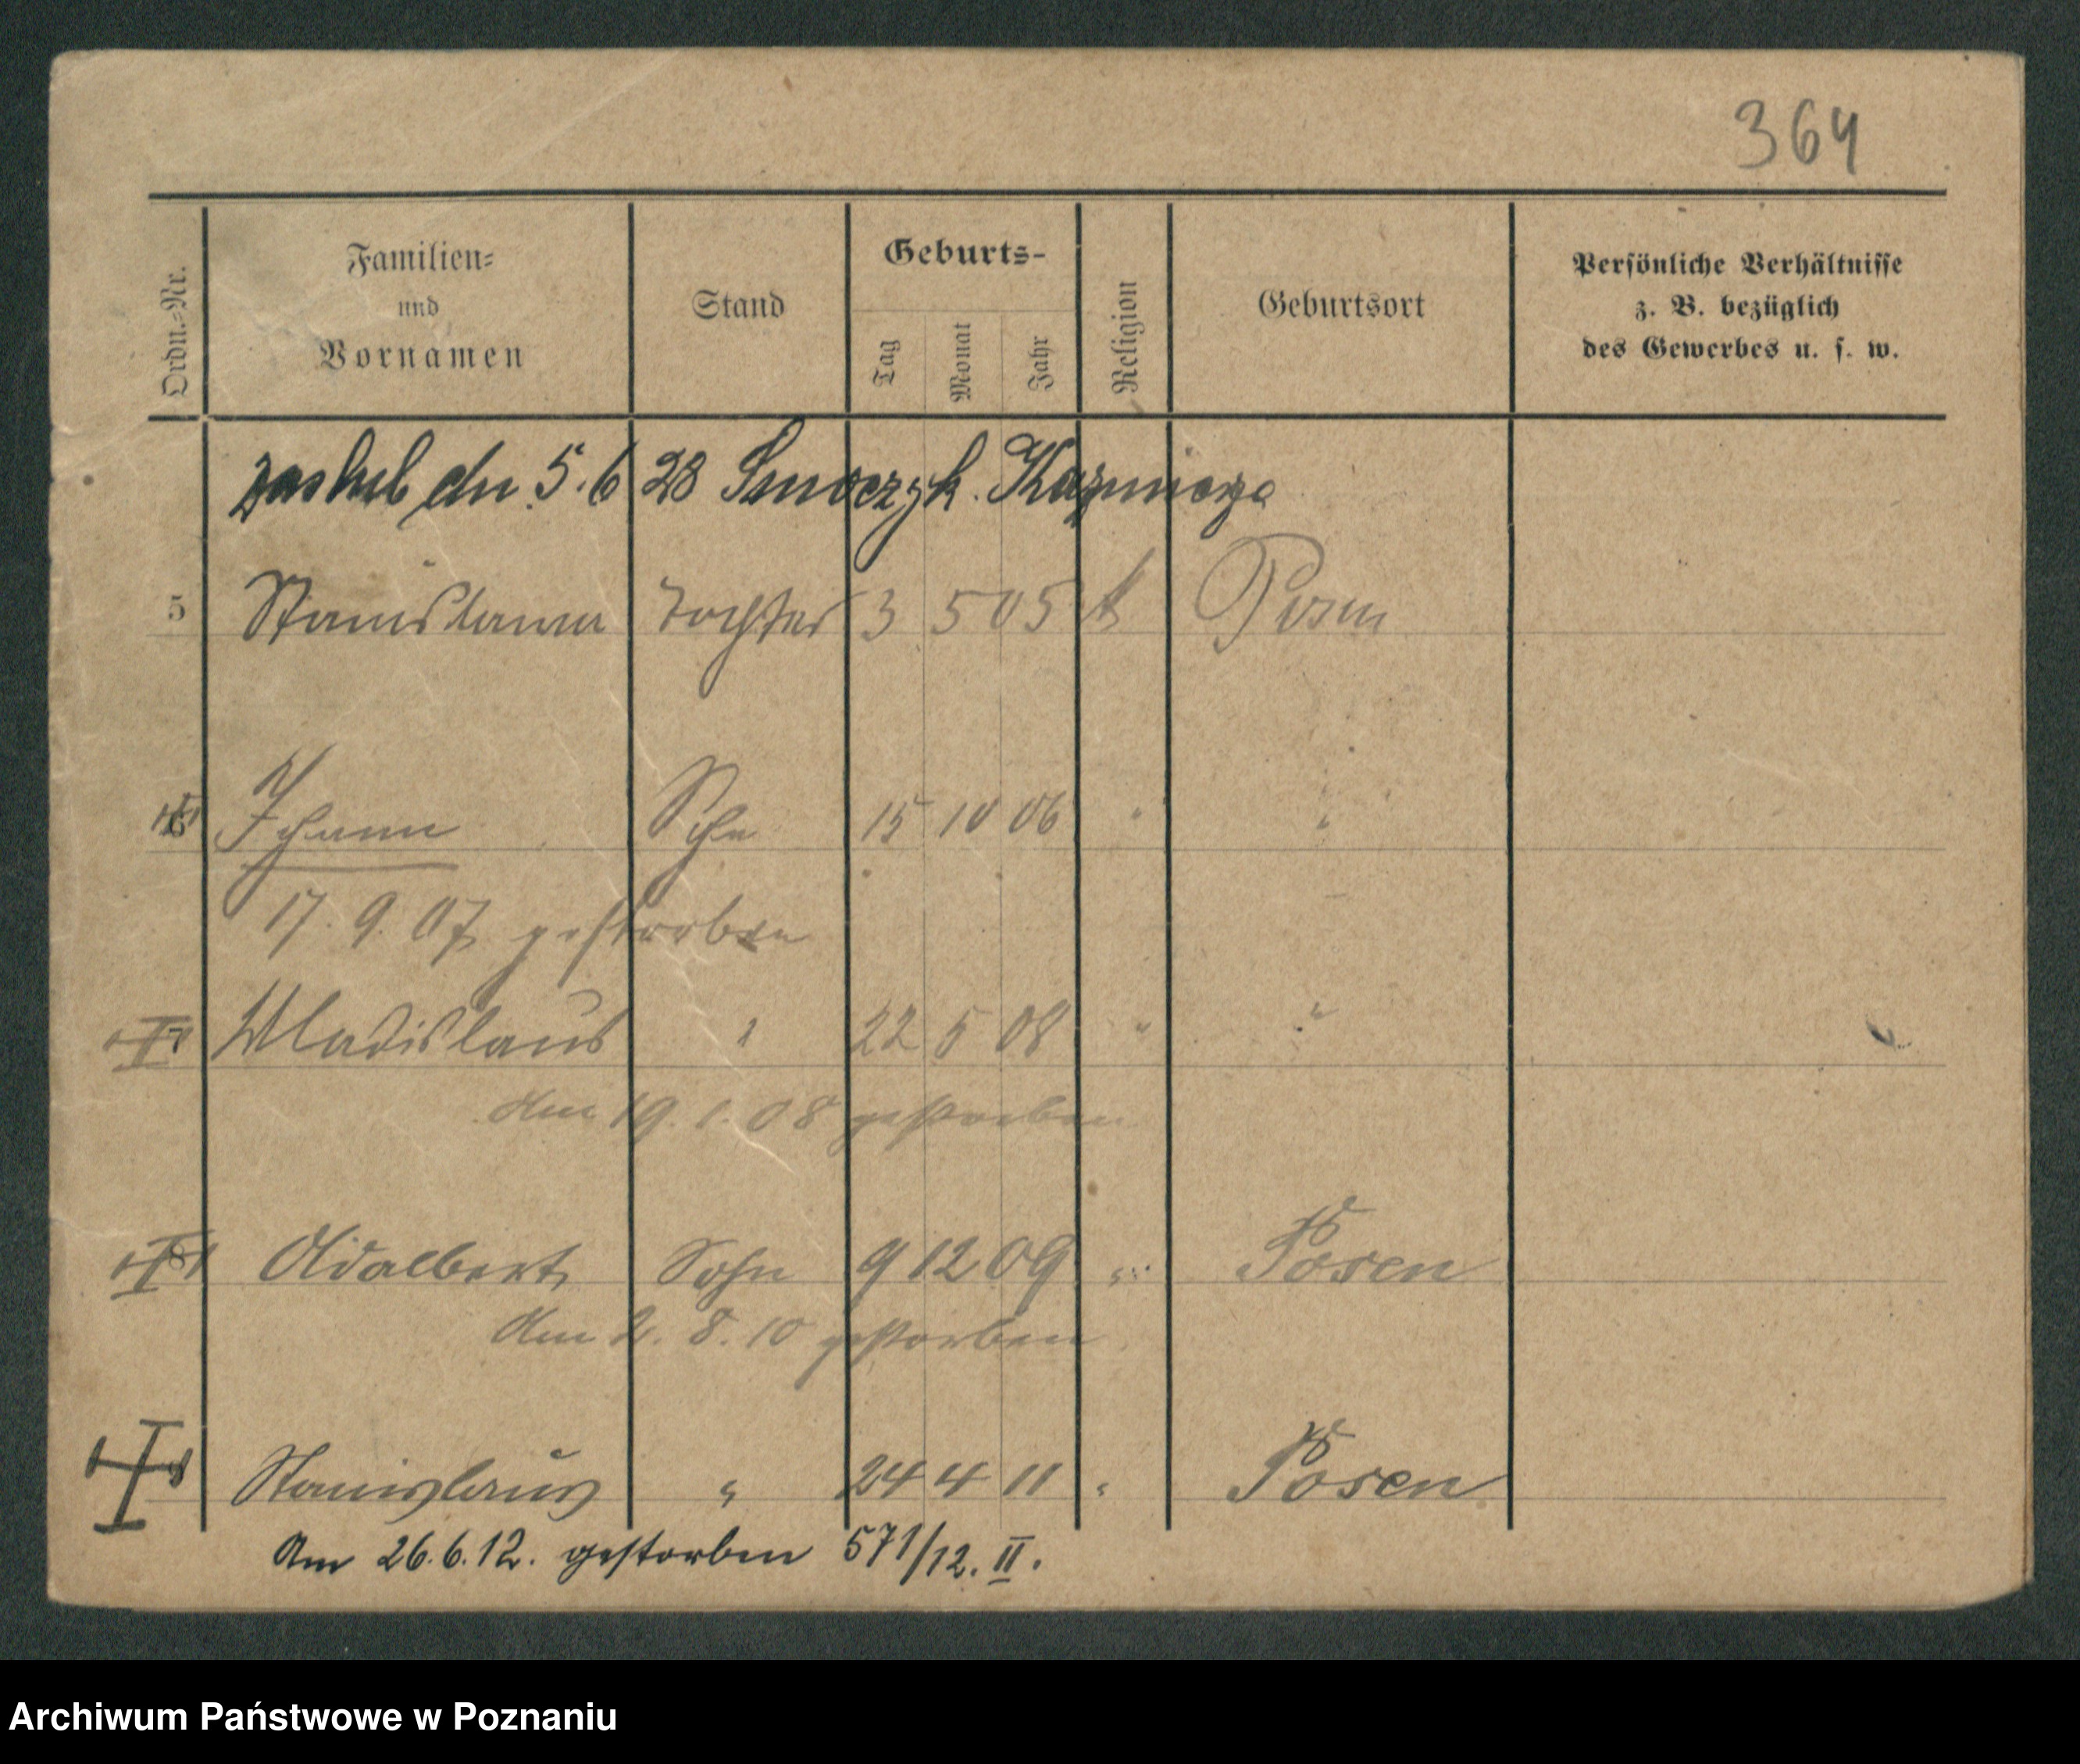 364
Ordn.-Nr. Familien- und Vornamen Stand Geburts- Tag Monat Jahr Religion Geburtsort Persönliche Verhältnisse z. B. bezüglich des Gewerbes u. s. w.
zaslub dn. 5.6 28 Smoczyk. Kazmierza
5 Stanislawa Tochter 3 5 05 k Posen
6 Johann Sohn 15 10 06 " "
17. 9. 07 gestorben
7 Wladislaus " 22 5 08 " "
Am 19. 1. 08 gestorben
8 Adalbert Sohn 9 12 09 " Posen
Am 2. 8. 10 gestorben
Stanislaus " 24 4 11 " Posen
Am 26.6.12. gestorben 571/12. II.
Archiwum Państwowe w Poznaniu